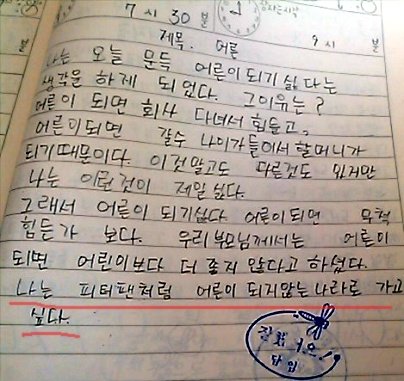 7 시 30 분
잠자는시각
제목. 어른
9 시 분
나는 오늘 문득 어른이 되기 싫다는
생각을 하게 되었다. 그이유는?
어른이 되면 회사 다녀서 힘들고,
어른이되면 갈수 나이가들어서할머니가
되기때문이다. 이것말고도 다른것도 있지만
나는 이런것이 제일 싫다.
그래서 어른이 되기싫다 어른이되면 무척
힘든가 보다. 우리부모님께서는 어른이
되면 어린이보다 더 좋지 않다고 하셨다.
나는 피터팬처럼 어른이 되지않는나라로 가고
싶다.
참 잘했어요